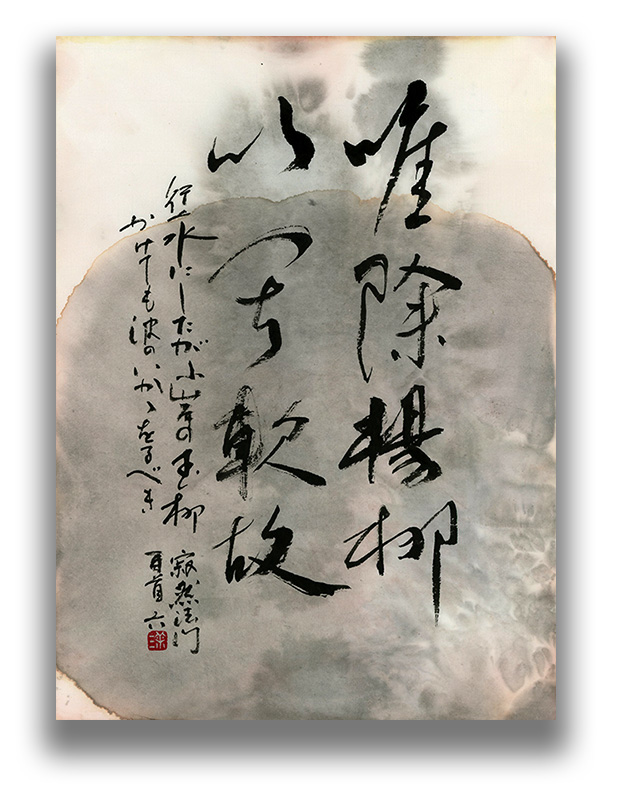 唯除楊柳
以其軟故
行水にしたがふ岸の玉柳
かけても波のいかゝをるべき
寂然法門
百首 六